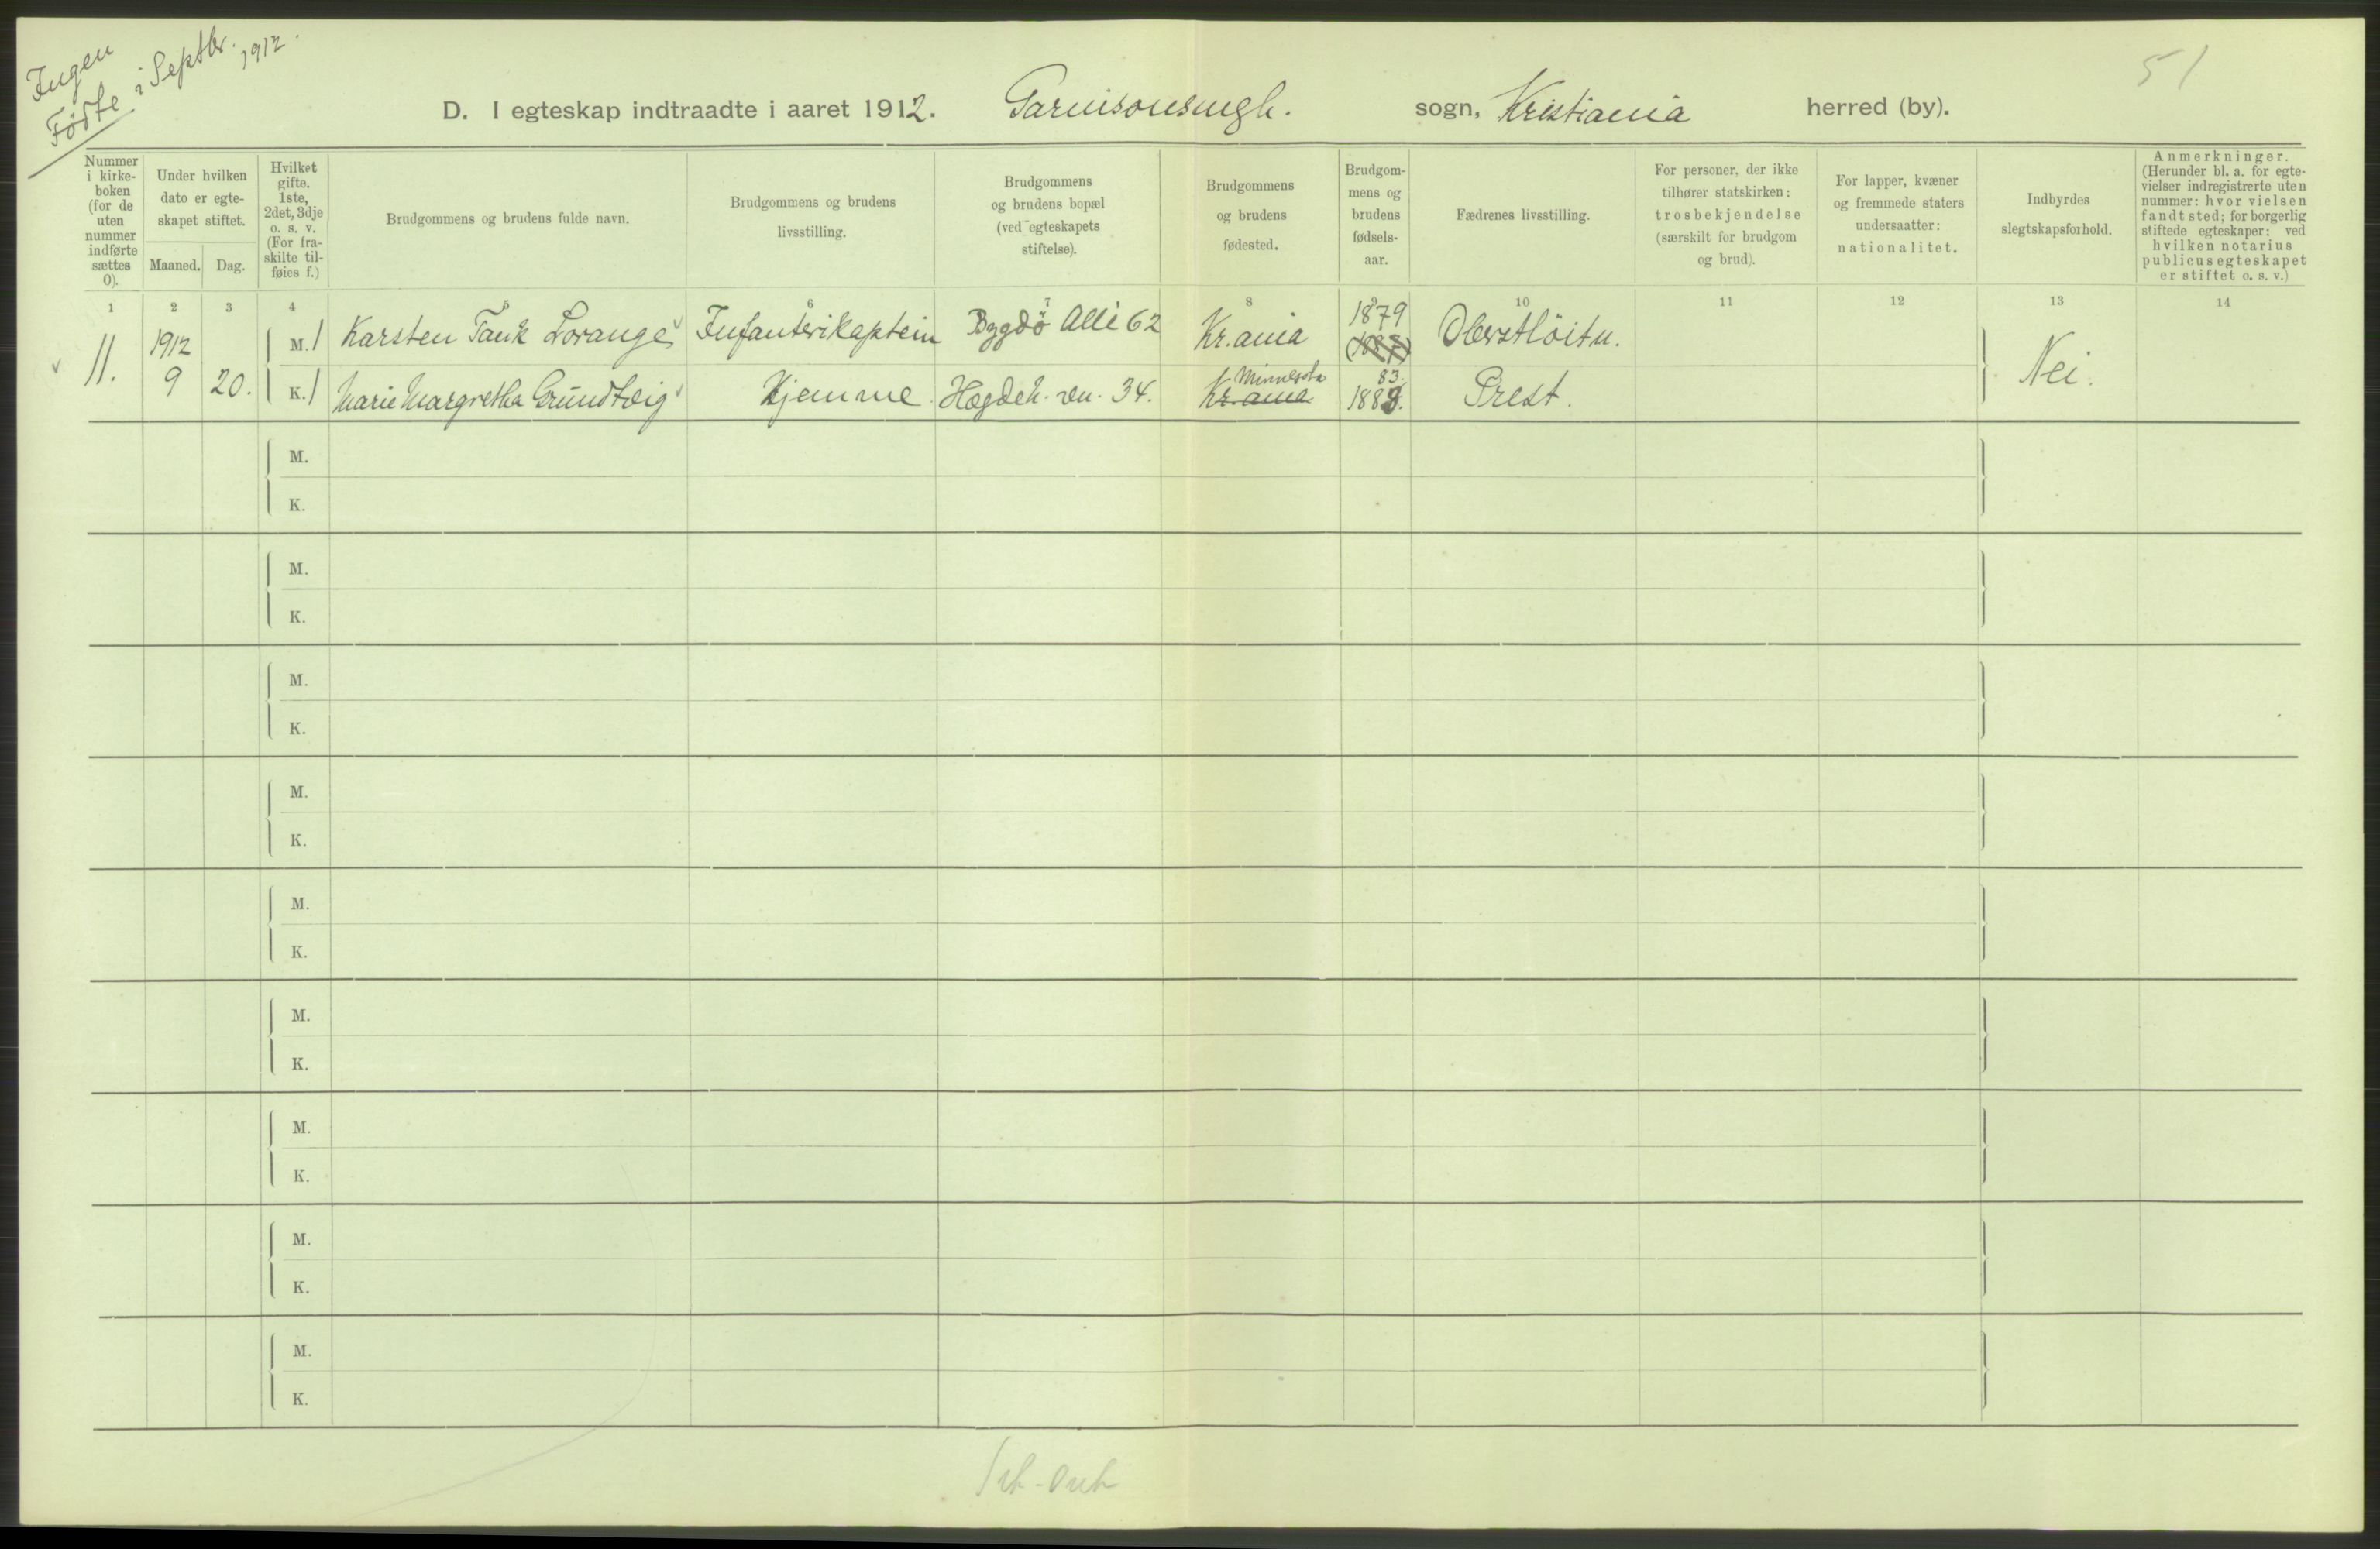 Ingen
Fødte i Septbr. 1912.
51
D. I egteskap indtraadte i aaret 1912. Garnisonsmgh. sogn, Kristiania herred (by).
Nummer i kirke-boken (for de uten nummer indførte sættes 0).
Under hvilken dato er egte-skapet stiftet.
Maaned. Dag.
Hvilket gifte. 1ste, 2det, 3dje o. s. v. (For fra-skilte til-føies f.)
Brudgommens og brudens fulde navn.
Brudgommens og brudens livsstilling.
Brudgommens og brudens bopæl (ved egteskapets stiftelse).
Brudgommens og brudens fødested.
Brudgom-mens og brudens fødsels-aar.
Fædrenes livsstilling.
For personer, der ikke tilhører statskirken: trosbekjendelse (særskilt for brudgom og brud).
For lapper, kvæner og fremmede staters undersaatter: nationalitet.
Indbyrdes slegtskapsforhold.
Anmerkninger. (Herunder bl. a. for egte-vielser indregistrerte uten nummer: hvor vielsen fandt sted; for borgerlig stiftede egteskaper: ved hvilken notarius publicus egteskapet er stiftet o. s. v.)
1 2 3 4 5 6 7 8 9 10 11 12 13 14
11. 1912 M. 1 Karsten Tank Lorange Infanterikaptein Bygdö Alle 62 Kr.ania 1879 Oberstlöitn. Nei.
9 20. K. 1 Marie Margretha Grundtvig Hjemme. Hægdeh. vn. 34. Kr.ania Minnesota 1883. 83. Prest.
M.
K.
M.
K.
M.
K.
M.
K.
M.
K.
M.
K.
M.
K.
M.
K.
M.
K.